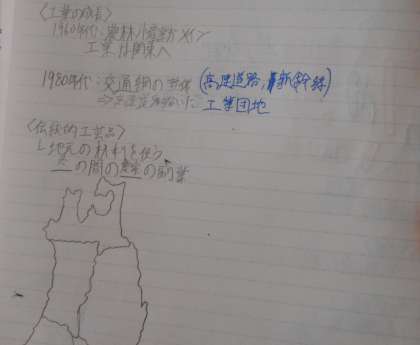 〈工業の成長〉
1960年代：農林水産業がメイン
工業は関東へ
1980年代：交通網の整備(高速道路,新幹線)
工業団地
〈伝統的工芸品〉
↳地元の材料を使う
冬の間の農家の副業